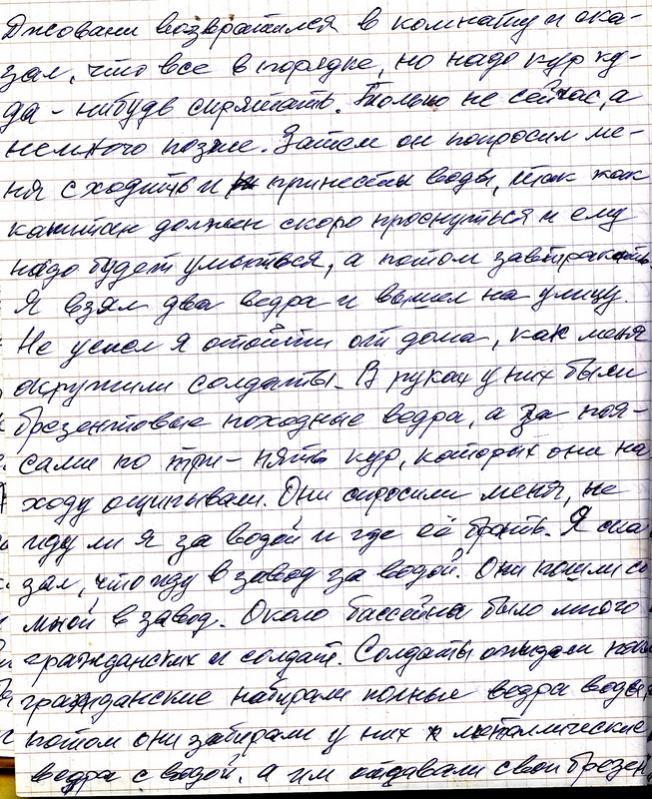 Джовани возвратился в комнату и ска-
зал, что все в порядке, но надо кур ку-
да-нибудь спрятать. Только не сейчас, а
немного позже. Затем он попросил ме-
ня сходить и принести воды, так как
капитан должен скоро проснуться и ему
надо будет умыться, а потом завтракать.
Я взял два ведра и вышел на улицу.
Не успел я отойти от дома, как меня
окружили солдаты. В руках у них были
брезентовые походные ведра, а за поя-
сами по три-пять кур, которых они на
ходу ощипывали. Они спросили меня, не
иду ли я за водой и где её брать. Я ска
зал, что иду в завод за водой. Они пошли со
мной в завод. Около бассейна было много
гражданских и солдат. Солдаты ожидали пока
гражданские набирали полные ведра воды
потом они забирали у них металлические
ведра с водой, а им отдавали свои брезен